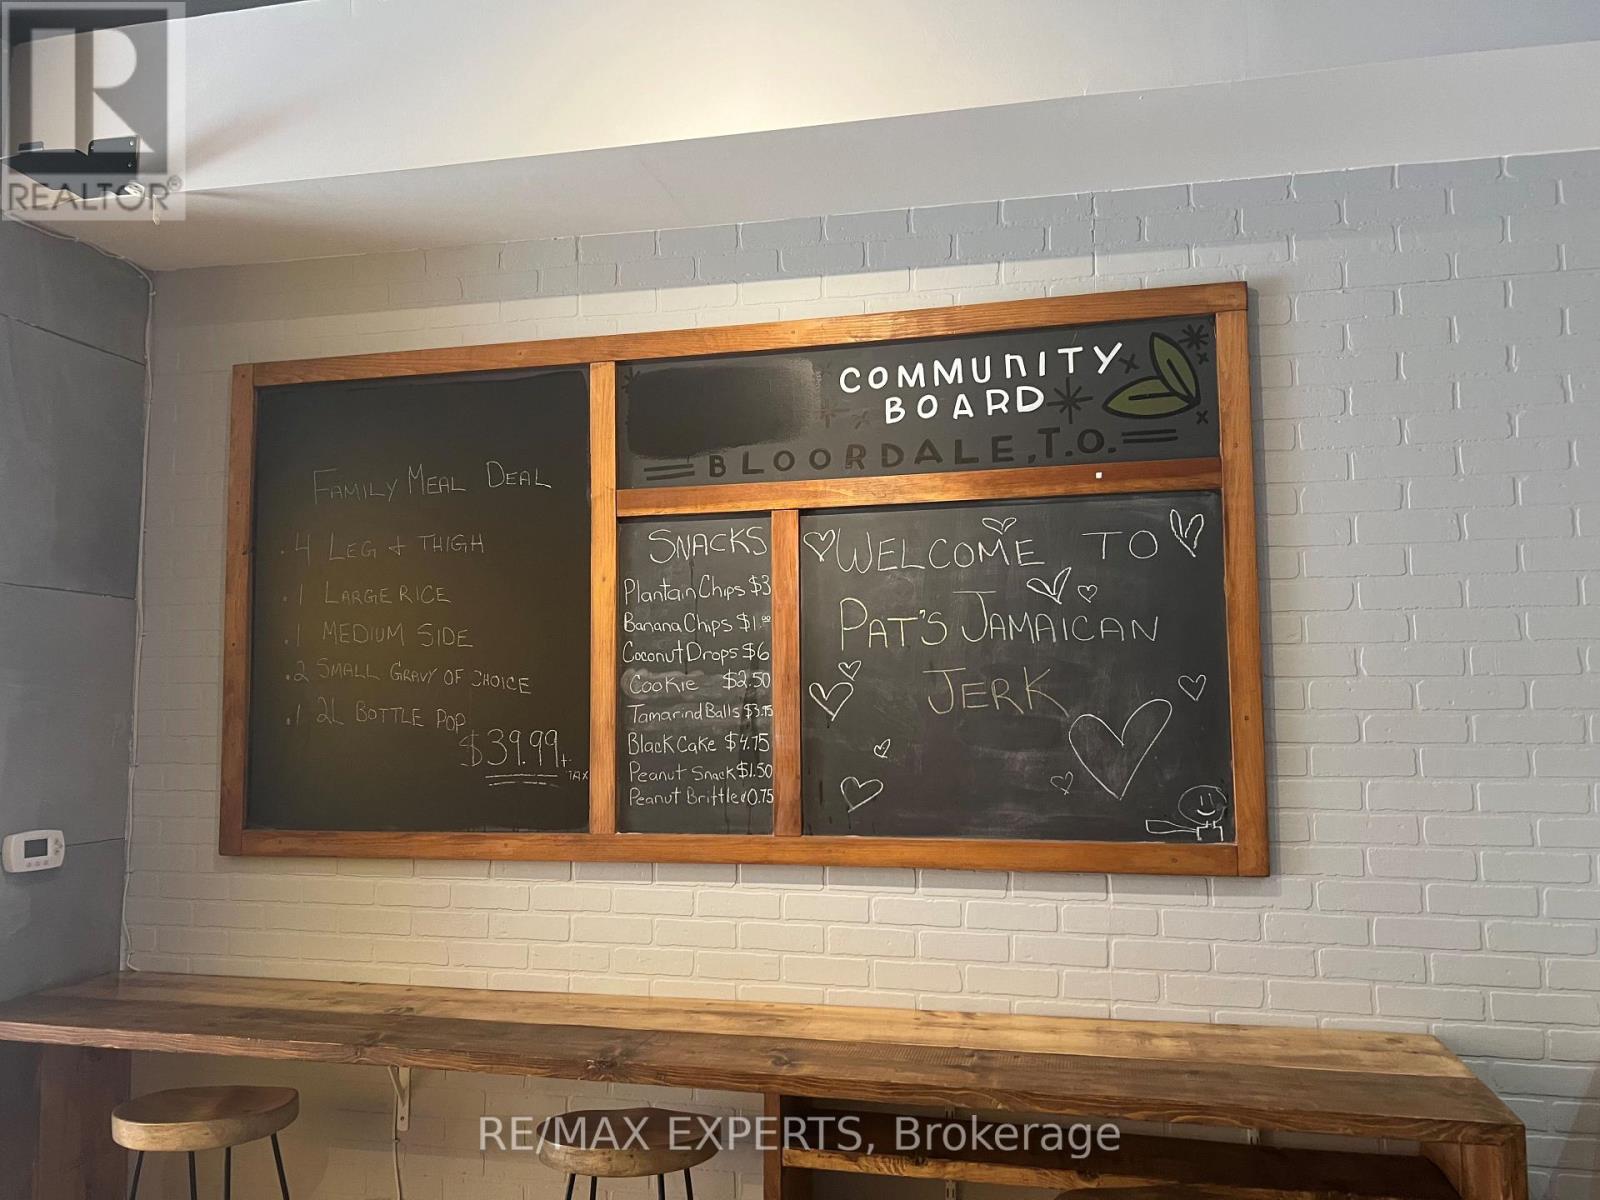 R
REALTOR®
COMMUNITY
BOARD
BLOORDALE, T.O.
FAMILY MEAL DEAL
. 4 LEG + THIGH
. 1 LARGE RICE
. 1 MEDIUM SIDE
. 2 SMALL GRAVY OF CHOICE
. 1 2L BOTTLE POP
$39.99 + TAX
SNACKS
Plantain Chips $3
Banana Chips $1.00
Coconut Drops $6
Cookie $2.50
Tamarind Balls $3.75
Black Cake $4.75
Peanut Snack $1.50
Peanut Brittle 0.75
WELCOME TO
PAT'S JAMAICAN
JERK
RE/MAX EXPERTS, Brokerage